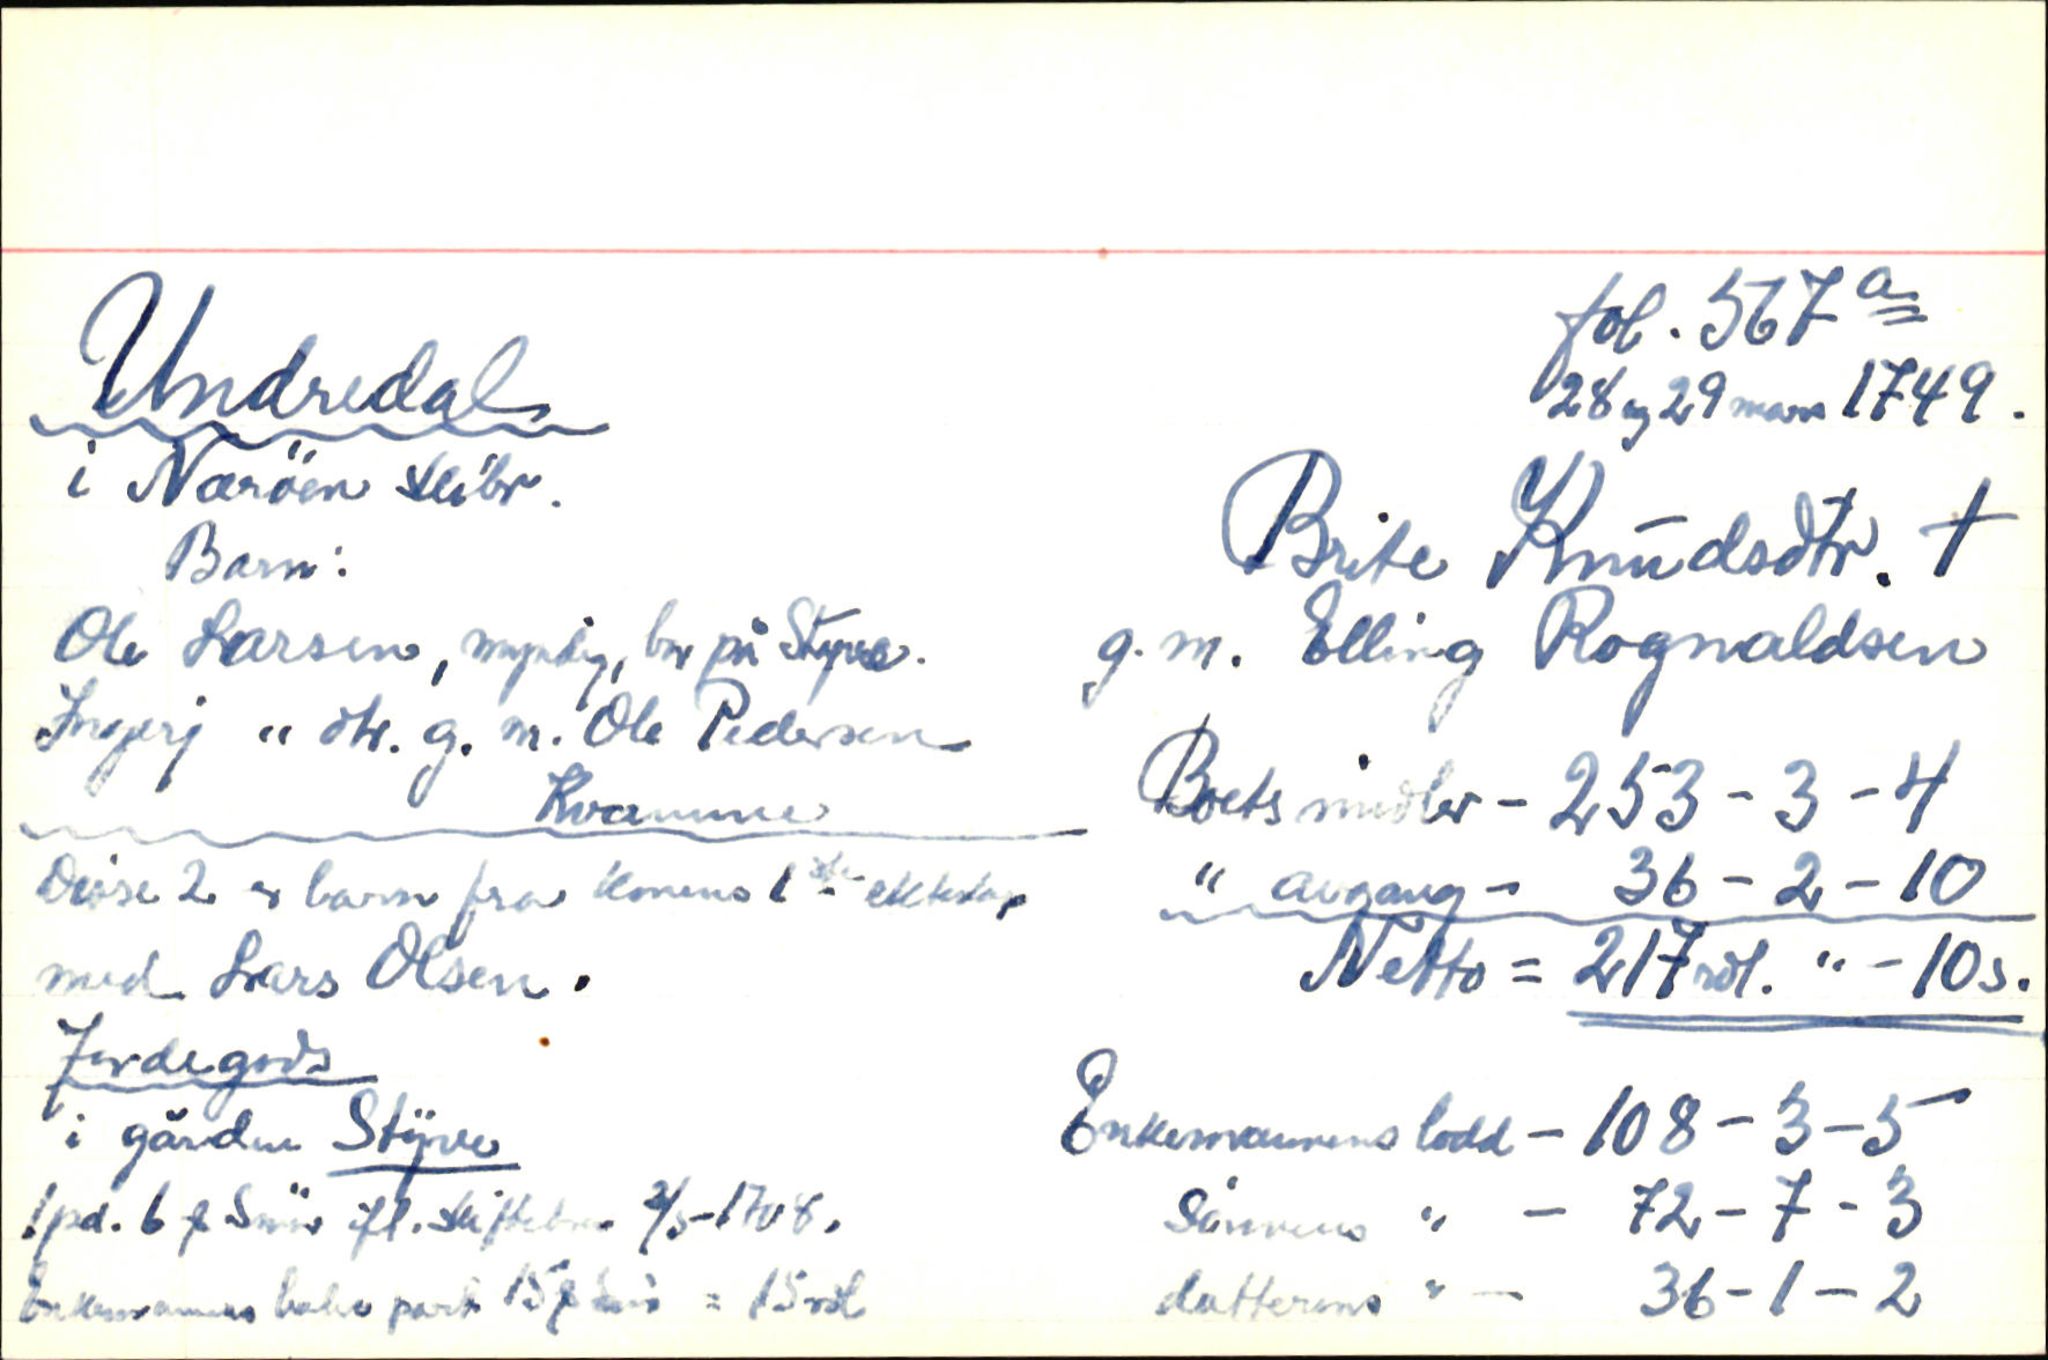 fol. 567a
28 og 29 mars 1749.
Undredal
i Næröen skibr.
Brite Knūdsdtr. †
g. m. Elling Rognaldsen
Barn:
Ole Larsen, myndig, bor på Styve.
Ingerj " dtr. g. m. Ole Pedersen
Kvamme
Disse 2 er barn fra konens 1ste ekteskap
med Lars Olsen.
Jordegods
i gården Stÿve
1 pd. 6 # Smör ifl. skiftebrev 2/5-1708.
Enkemannens halve part 15 # Smör = 15 rdl
Boets midler - 253 - 3 - 4
" avgang - 36 - 2 - 10
Netto = 217 rdl. " - 10 s.
Enkemannens lodd - 108 - 3 - 5
Sönnens " - 72 - 7 - 3
datterens " - 36 - 1 - 2